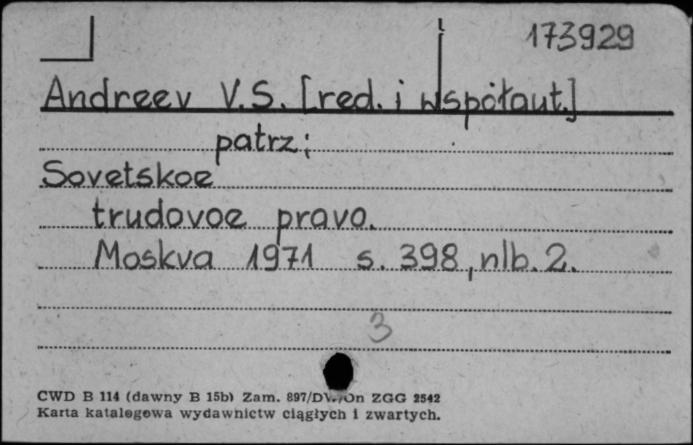 173929
Andreev V.S. [red. i współaut.]
patrz:
Sovetskoe
trudovoe pravo.
Moskva 1971 s. 398, nlb. 2.
3
CWD B 114 (dawny B 15b) Zam. 897/DW/On ZGG 2542
Karta katalogowa wydawnictw ciągłych i zwartych.